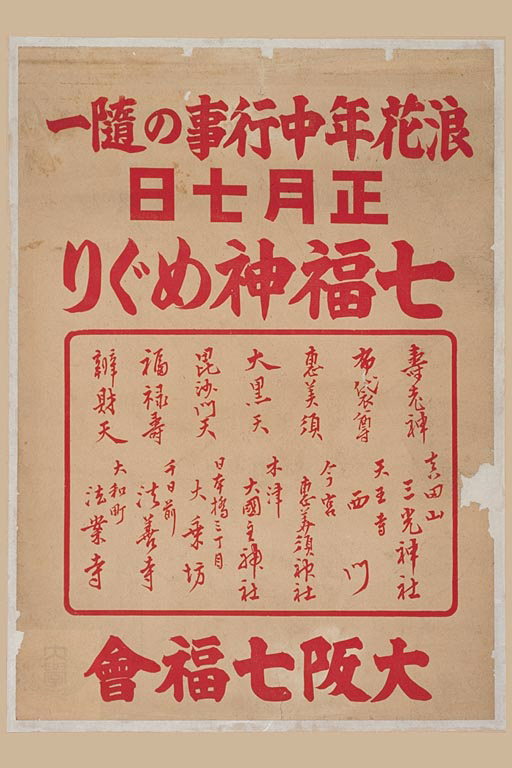 浪花年中行事の随一
正月七日
七福神めぐり
壽老神 真田山 三光神社
布袋尊 天王寺 西門
恵美須 今宮 恵美須神社
大黒天 木津 大國主神社
毘沙門天 日本橋三丁目 大乗坊
福禄寿 千日前 法善寺
辨財天 大和町 法業寺
大阪七福會